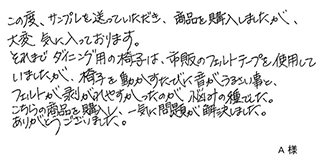 この度、サンプルを送っていただき、商品を購入しましたが、
大変気に入っております。
それまでダイニング用の椅子は、市販のフェルトテープを使用して
いましたが、椅子を動かすたびに音がうるさい事と、
フェルトが剥がれやすかったのが悩みの種でした。
こちらの商品を購入し、一気に問題が解決しました。
ありがとうございました。
A様